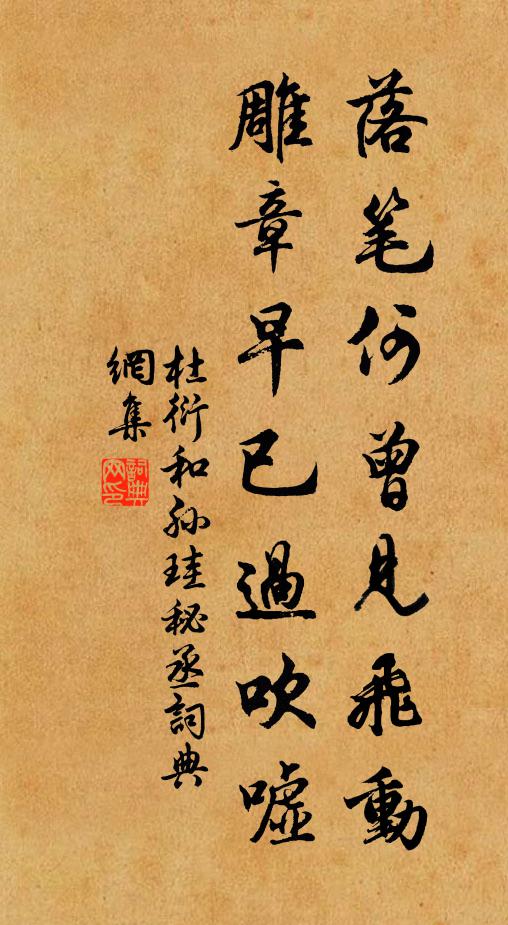 落笔何曾見飛動
雕章早已過吹噓
杜衍和孙珪秘丞詞典
網集
詞典
网印